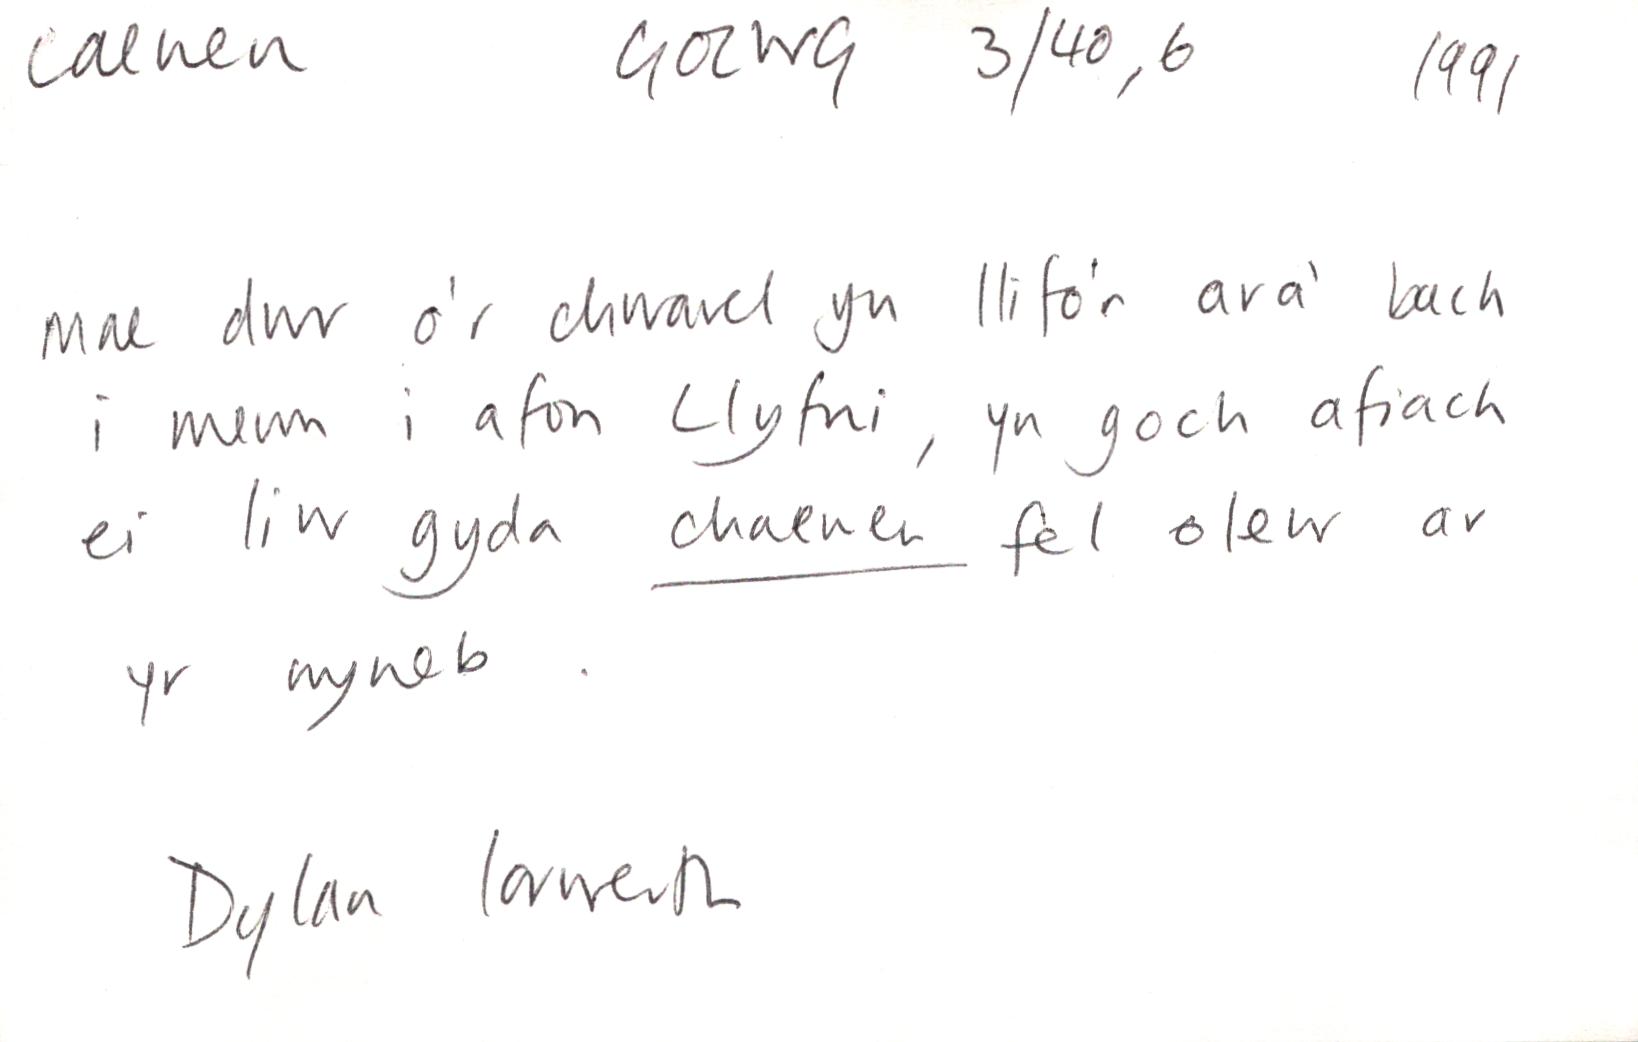 caenen GOLWG 3/40, 6 1991
Mae dwr o'r chwarel yn llifo'n ara' bach
i mewn i afon Llyfni, yn goch afiach
ei liw gyda chaenen fel olew ar
yr wyneb.
Dylan Iorwerth